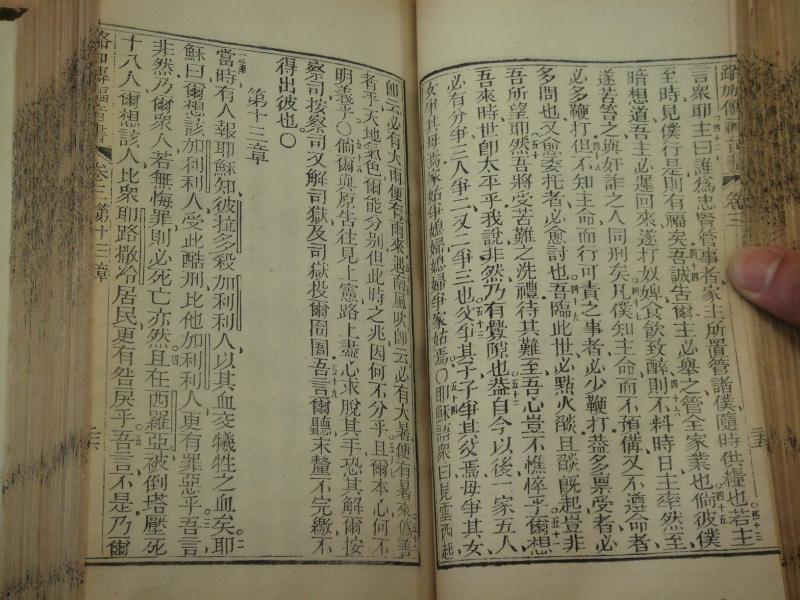 路加傳福音書 卷三
言衆耶主曰誰爲忠賢管事者家主所置管諸僕隨時供糧也若主
至時見僕行是則有福矣吾誠告爾主必舉之管全家業也倘彼僕
暗想道吾主必遲回來遂打奴婢食飲致醉則不料時日主率然至
遂若答之與奸詐之人同刑矣凡僕知主命而不預備又不遵命者
必多鞭打但不知主命而行可責之事者必少鞭打蓋多票受者必
多問也又愈委托者必愈討也吾臨此世必點火燄且燄既起豈非
吾所望耶然吾將受苦難之洗禮待其難至吾心豈不憔悴乎爾想
吾來時世卽太平乎我說非然乃有釁隙也葢自今以後一家五人
必有分爭三人爭二又二爭三也父爭其子子爭其父焉母爭其女
女爭其母焉家姑爭媳婦媳婦爭家姑焉○耶穌語衆曰見雲西起
卽云必有大雨便有雨來遇南風吹卽云必有大暑便有暑來僞善
者乎天地氣色爾能分別但此時之兆因何不分乎且爾本心何不
明義乎○倘爾與原告往見上憲路上盡心求脫其手恐其解爾按
察司按察司又解司獄及司獄投爾囹圄吾言爾聽末釐不完繳不
得出彼也○
第十三章
當時有人報耶穌知彼拉多殺加利利人以其血交犧牲之血矣耶
穌曰爾想該加利利人受此酷刑比他加利利人更有罪惡乎吾言
非然乃爾衆人若無悔罪則必死亡亦然且在西羅亞被倒塔壓死
十八人爾想該人比衆耶路撒冷居民更有咎戾乎吾言不是乃爾
路加傳福音書 卷三 第十三章